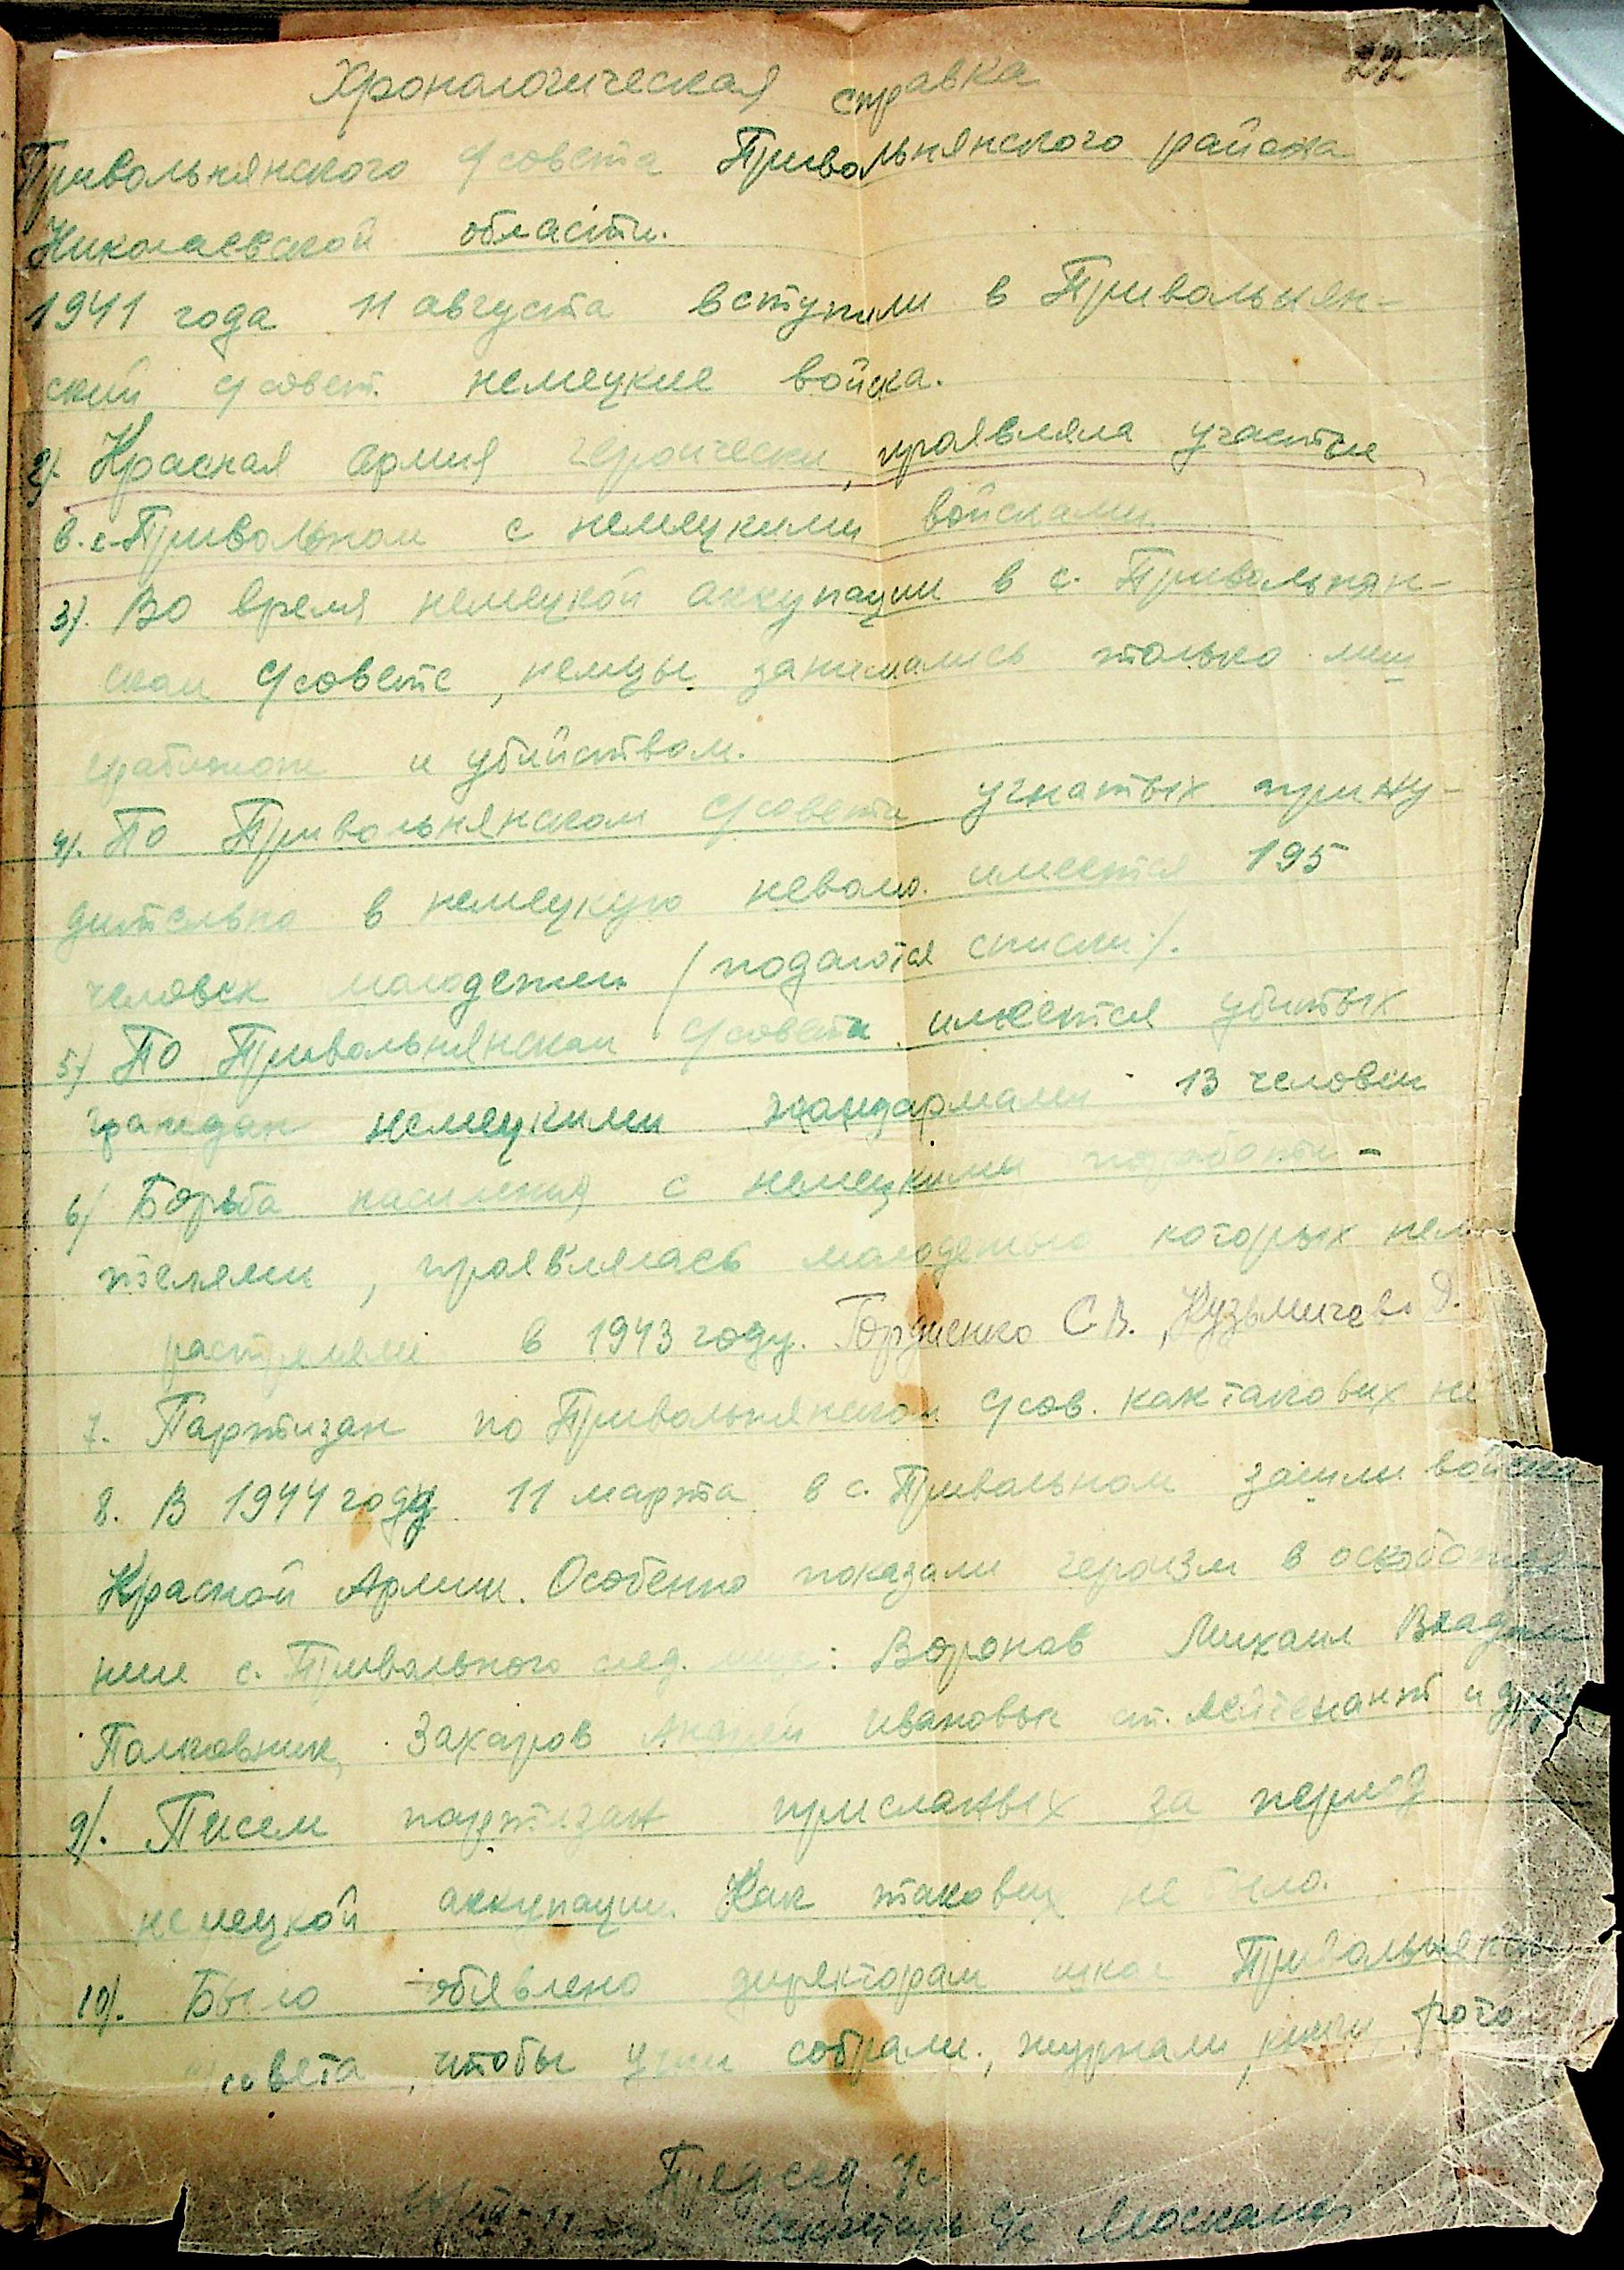 22
Хронологическая справка
Привольнянского с/совета Привольнянского района
Николаевской области.
1941 года 11 августа вступили в Привольнян-
ский с/совет. немецкие войска.
2). Красная армия героически, проявляла участие
в. с. Привольном с немецкими войсками
3). Во время немецкой аккупации в с. Привольнян-
ском с/совете, немцы занимались только
грабежом и убийством.
4). По Привольнянском с/совети угнатых прину-
дительно в немецкую неволю. имеется 195
человек молодежи (подаются списки).
5) По Привольнянском с/совети имеется убитых
граждан немецкими жандармами 13 человек
6) Борьба населения с немецкими поработи-
телями, проявлялась молодежью которых
расстреляли в 1943 году. Гордиенко С.В., Кузьмичева
7. Партизан по Привольнянском с/сов. как таковых не
8. В 1944 году 11 марта в с. Привольном зашли войска
Красной Армии. Особенно показали героизм в
нии с. Привольного след. : Воронов Михаил
Полковник, Захаров Андрей Ивановыч ст. лейтенант и
9). Писем партизан присланных за период
немецкой аккупации. Как таковых не было.
10). Было обявлено директорам школ
с/совета, чтобы собрали., журнали, книги, фото
Председ. с/с
секретарь с/с